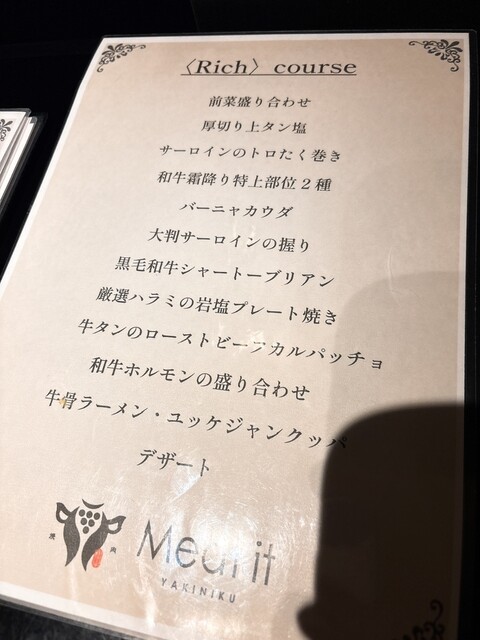 〈Rich〉 course
前菜盛り合わせ
厚切り上タン塩
サーロインのトロたく巻き
和牛霜降り特上部位2種
バーニャカウダ
大判サーロインの握り
黒毛和牛シャートーブリアン
厳選ハラミの岩塩プレート焼き
牛タンのローストビーフカルパッチョ
和牛ホルモンの盛り合わせ
牛骨ラーメン・ユッケジャンクッパ
デザート
焼 肉
Meat it
YAKINIKU